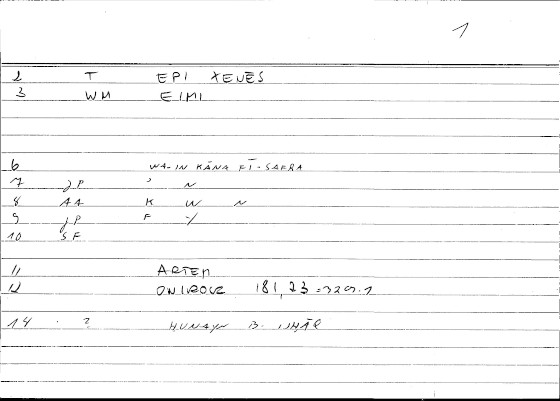 1
2 T EPI XENĒS
3 WM EIMI
6 WA-IN KĀNA FĪ-SAFRA
7 JP ' N
8 AA K W N
9 JP F Y
10 SF
11 ARTEM
12 ONIROCR 181,23 = 329.1
14 . ? HUNAYN B.